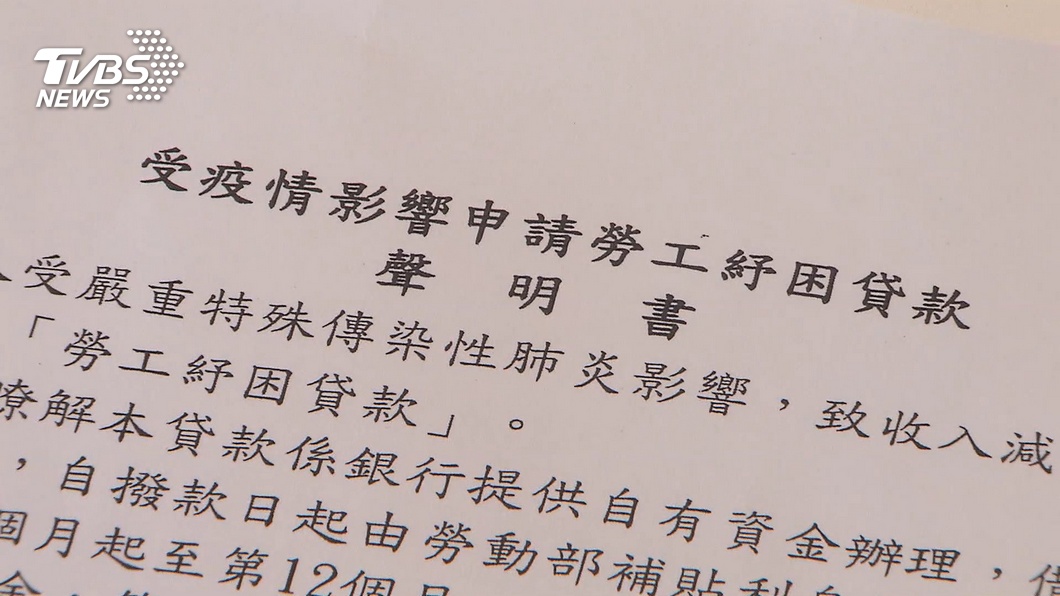 TVBS
NEWS
受疫情影響申請勞工紓困貸款
聲明書
受嚴重特殊傳染性肺炎影響，致收入減
「勞工紓困貸款」。
瞭解本貸款係銀行提供自有資金辦理，借
，自撥款日起由勞動部補貼利息
個月起至第12個月
金